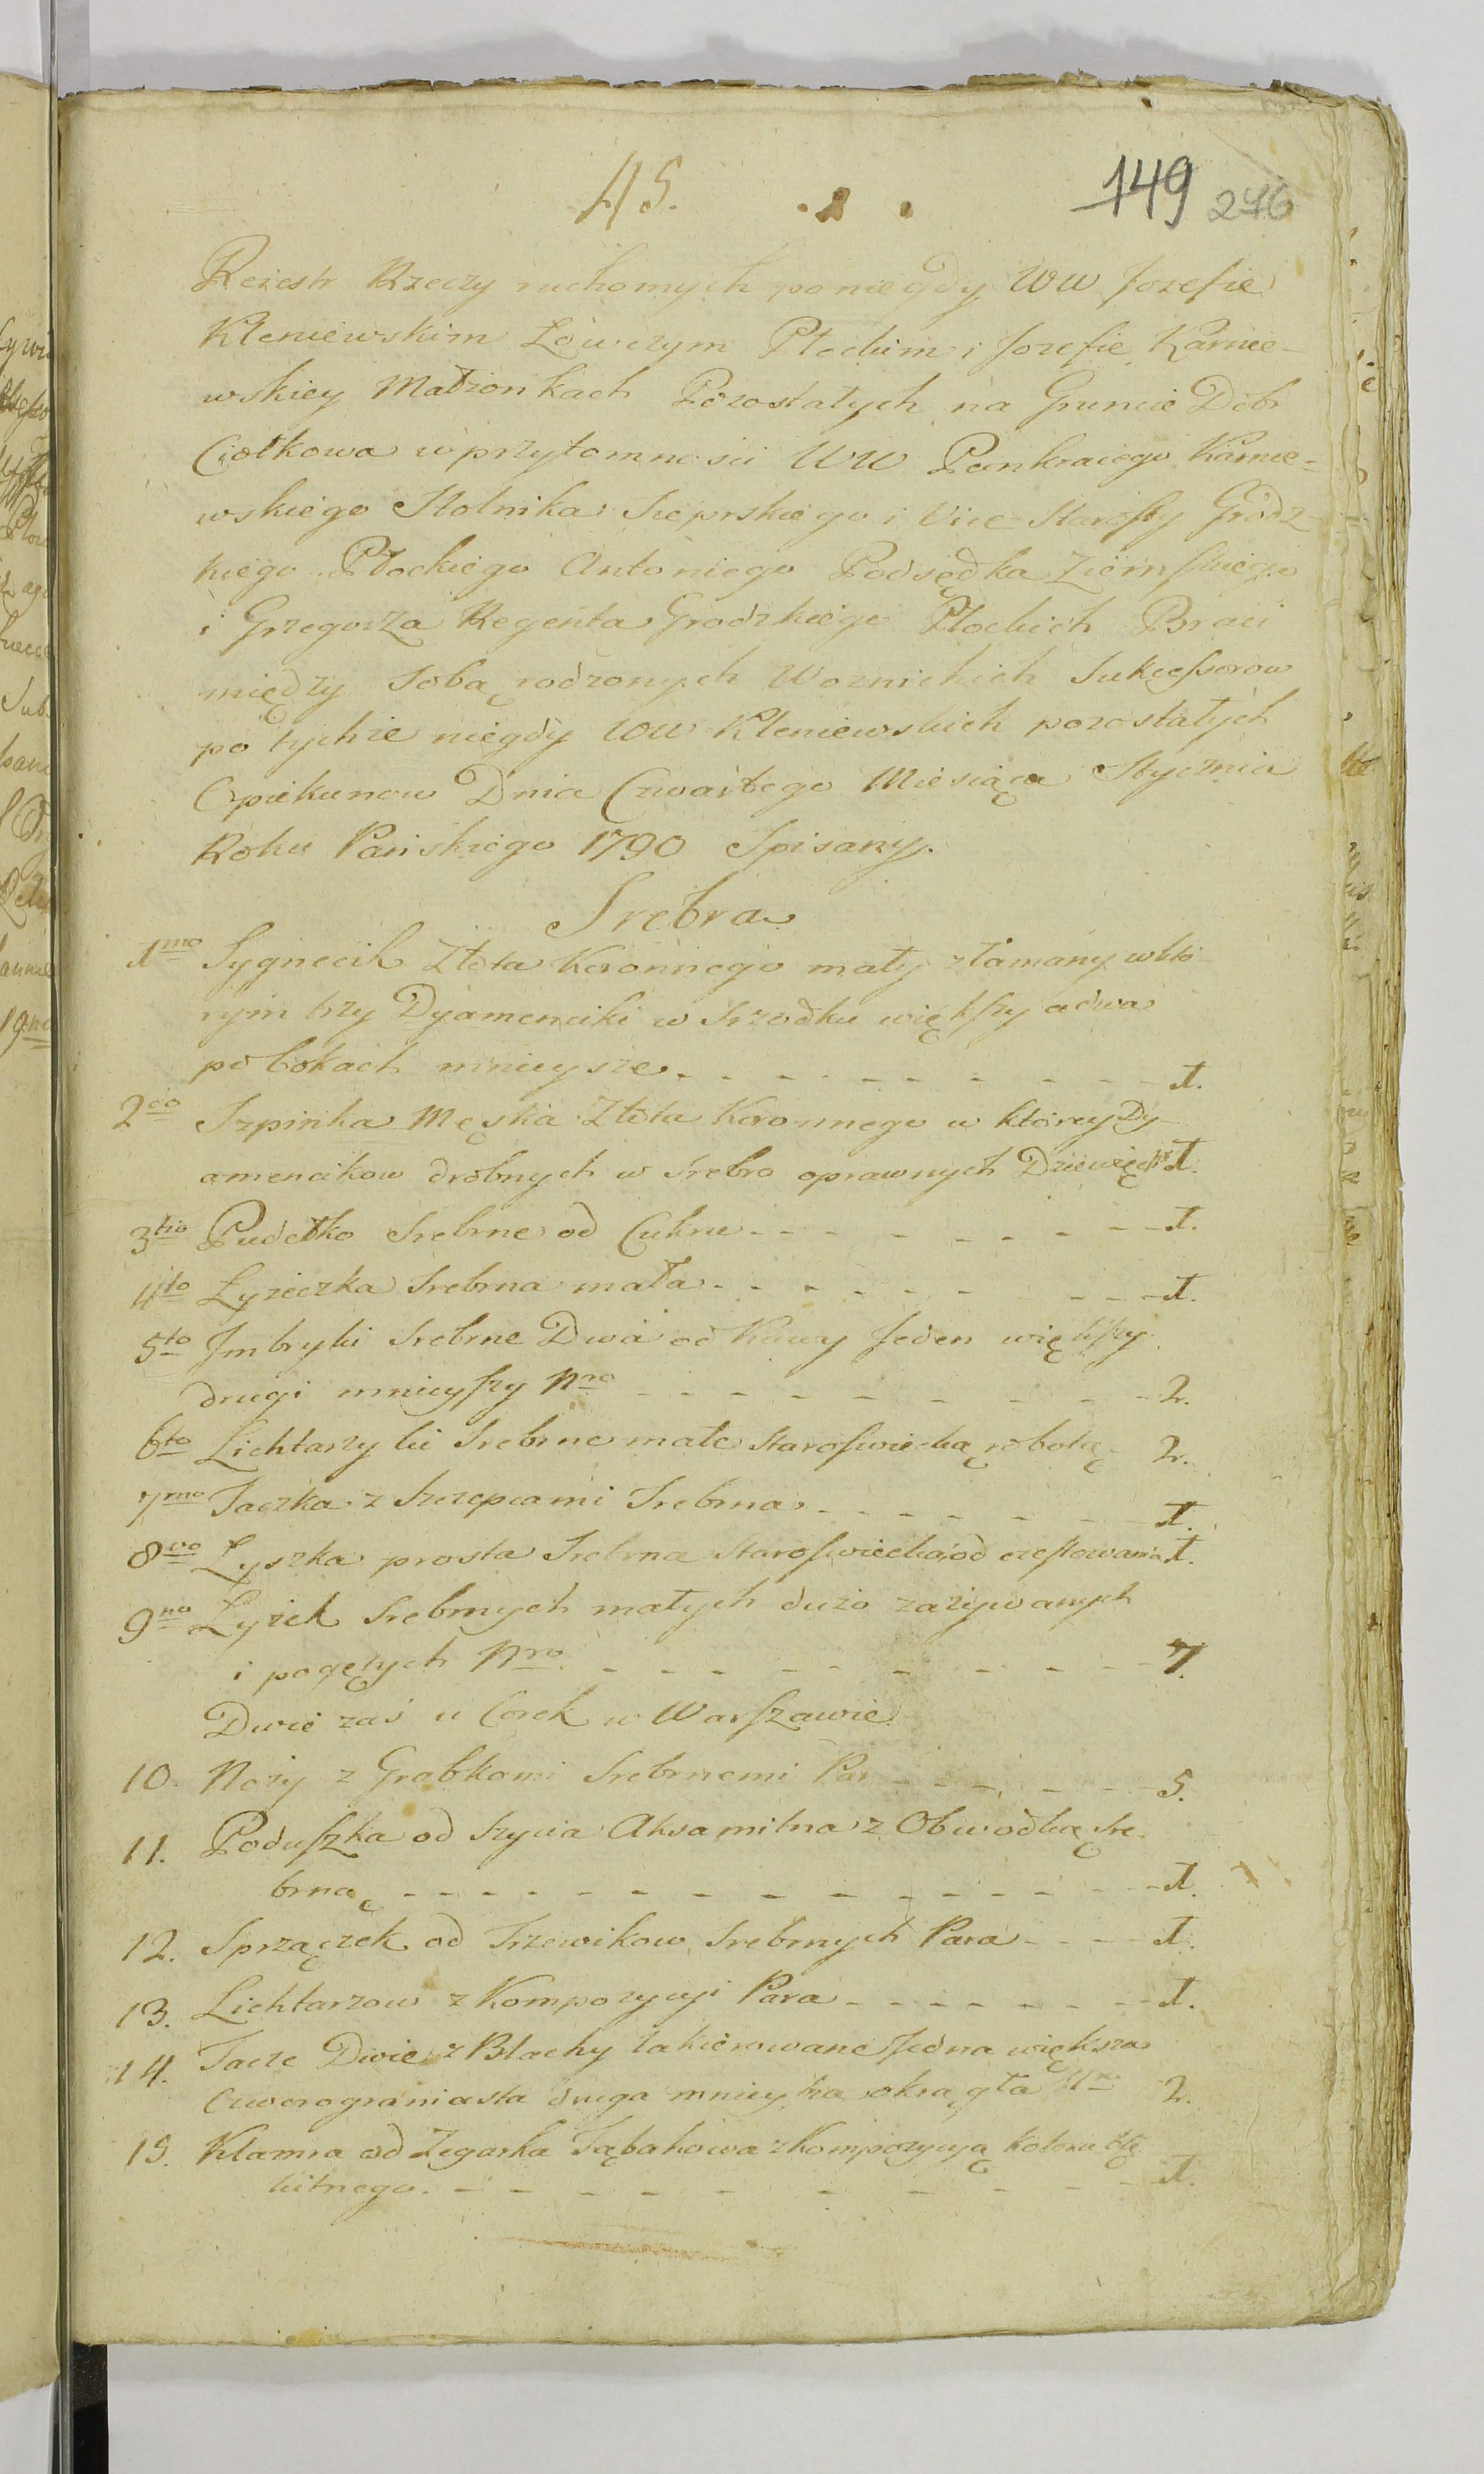 45.
149 276
Rejestr Rzeczy ruchomych po niegdy WW Jozefie
Kleniewskim Łowczym Płockim i Jozefie Karnie-
wskiey Małżonkach Pozostałych na Gruncie Dobr
Ciółkowa w przytomnosci WW Pankracego Karnie-
wskiego Stolnika Sieprskiego i Vice-Starosty Grodz-
kiego Płockiego Antoniego Podsędka Ziemskiego
i Grzegorza Regenta Grodzkiego Płockich Braci
między sobą rodzonych Woznickich Sukcessorow
po tychże niegdy WW Kleniewskich pozostałych
Opiekunow Dnia Czwartego Miesiąca Stycznia
Roku Pańskiego 1790 Spisany.
Srebra
1mo Sygnecik Złota Koronnego mały złamany w któ-
rym trzy Dyamenciki w Srzodku większy a dwa
po bokach mnieysze - - - - - - - - 1.
2do Szpinka Męska Złota Koronnego w którey Dy-
amencikow drobnych w Srebro oprawnych Dziewięć 1.
3tio Pudełko Srebrne od Cukru - - - - - - - 1.
4to Łyżeczka Srebrna mała - - - - - - - - 1.
5to Jmbryki Srebrne Dwa od Kawy Jeden większy
drugi mnieyszy Nro - - - - - - - - 2.
6to Lichtarzyki Srebrne małe Staroswiecką robotą - 2.
7mo Taczka z Szczepcami Srebrna - - - - - - 1.
8vo Łyszka prosta Srebrna Staroswiecka od czestowania 1.
9no Łyżek Srebrnych małych dużo zażywanych
i pogętych Nro - - - - - - - - - 7.
Dwie zaś u Corek w Warszawie
10. Noży z Grabkami Srebrnemi Par - - - - - 5.
11. Poduszka od Szycia Aksamitna z Obwodką Sre-
brną - - - - - - - - - - - - 1.
12. Sprzączek od Trzewikow Srebrnych Para - - - 1.
13. Lichtarzow z Kompozycyi Para - - - - - - 1.
14. Tace Dwie z Blachy lakierowane Jedna większa
Czworograniasta druga mnieysza okrągła Nro 2.
15. Klamra od Zegarka Tąbakowa z Kompozycyą koloru błę
kitnego. - - - - - - - - - 1.